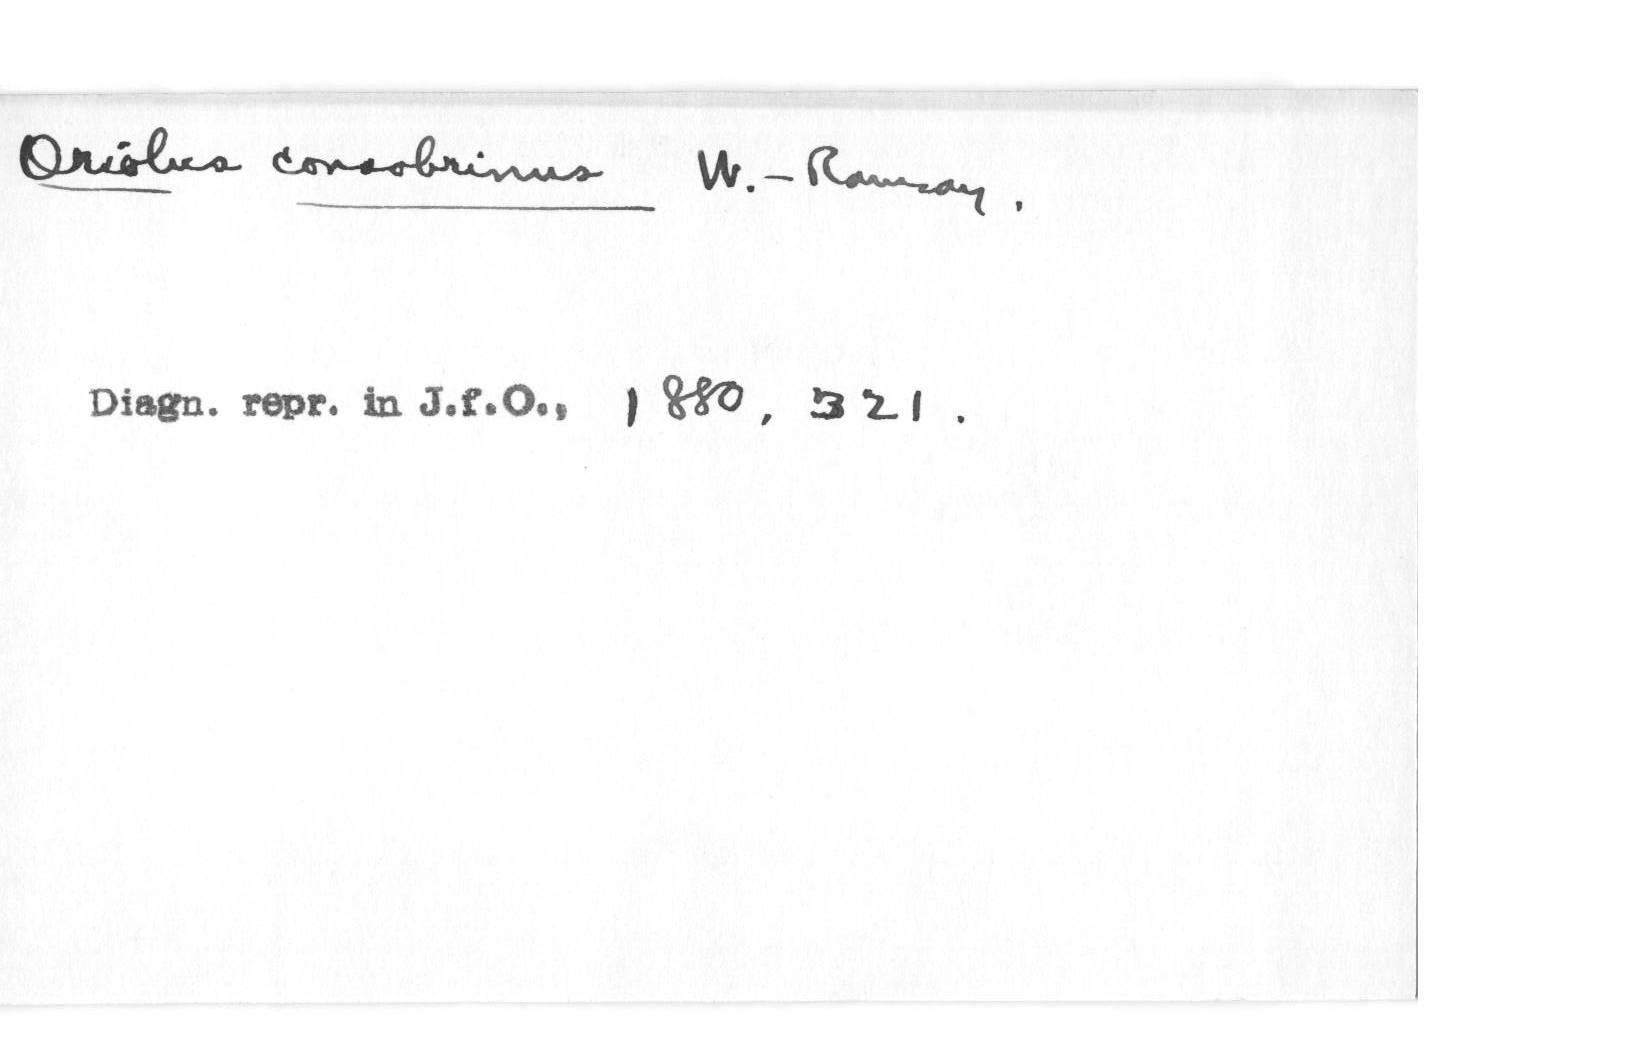 Oriolus consobrinus W.-Ramsay.
Diagn. repr. in J.f.O., 1880, 321.